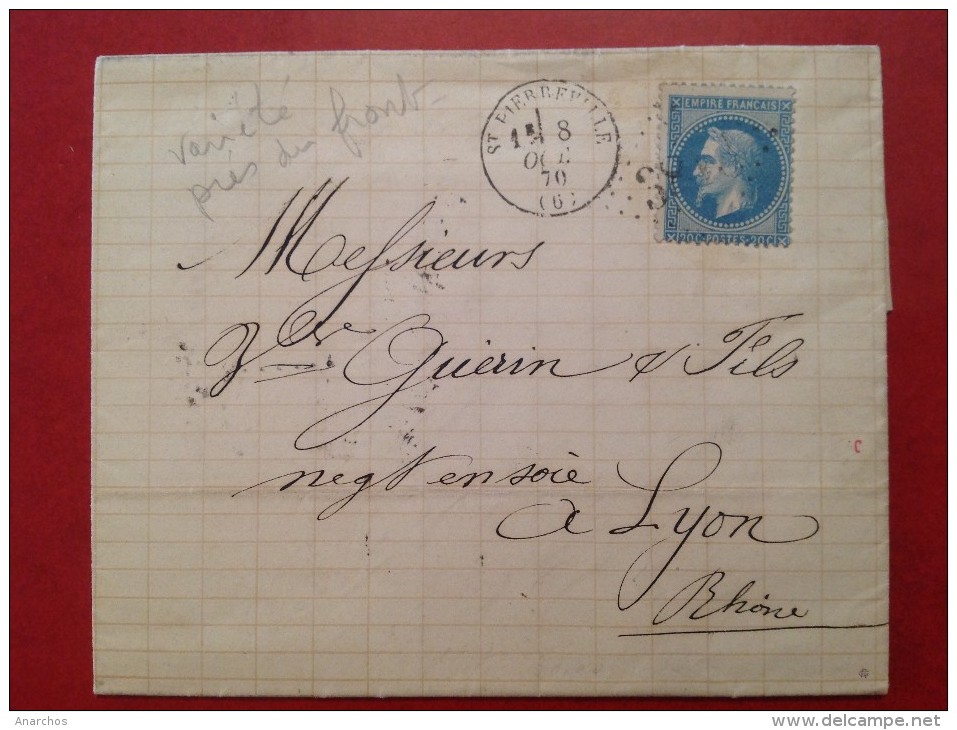 variété
près du front
ST PIERREVILLE
1E 8
OCT.
70
(6)
EMPIRE FRANÇAIS
20C POSTES 20C
Messieurs
Vve Guérin & Fils
negt en soie
à Lyon
Rhône
Anarchos
www.delcampe.net